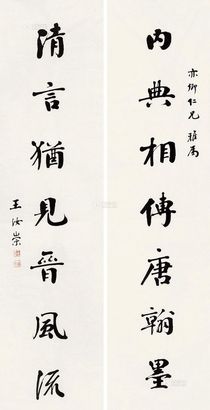 亦卿仁兄 雅屬
內典相傳唐翰墨
清言猶見晉風流
王汝崇